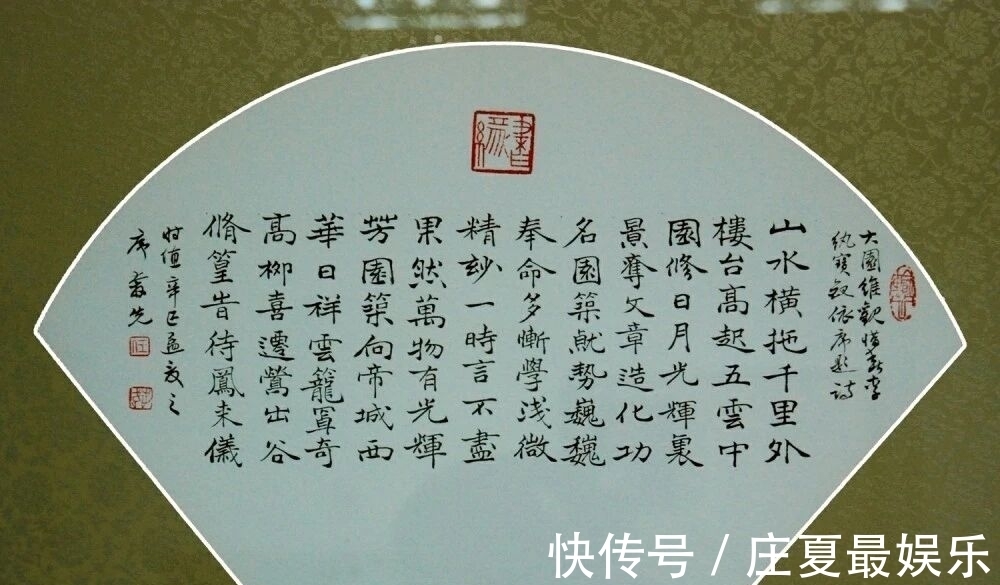 大園維觀惜春李
紈寶釵依序題詩
山水橫拖千里外
樓台高起五雲中
園修日月光輝裏
景奪文章造化功
名園築就勢巍巍
奉命多慚學淺微
精玅一時言不盡
果然萬物有光輝
芳園築向帝城西
華日祥雲籠罩奇
高柳喜遷鶯出谷
脩篁旹待鳳来儀
時值辛巳孟夏之
序
先
快传号 / 庄夏最娱乐